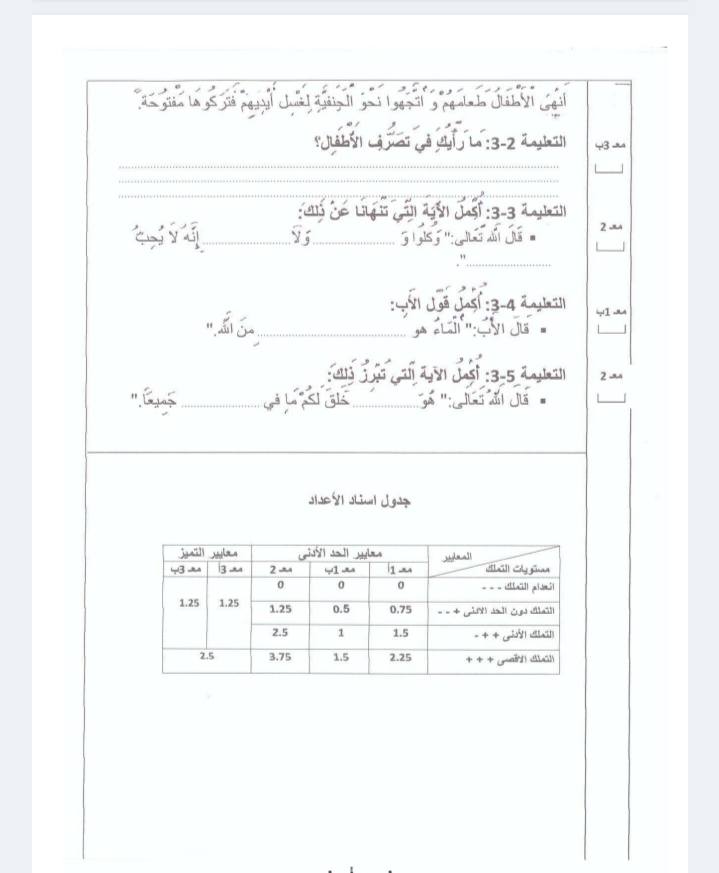 أَنْهَى الأَطْفَالُ طَعَامَهُمْ وَ اتَّجَهُوا نَحْوَ الْحَنَفِيَّةِ لِغَسْلِ أَيْدِيهِمْ فَتَرَكُوهَا مَفْتُوحَةً.
معـ 3ب
التعليمة 2-3: مَا رَأْيُكَ فِي تَصَرُّفِ الأَطْفَالِ؟
معـ 2
التعليمة 3-3: أُكْمِلُ الآيَةَ الَّتِي تَنْهَانَا عَنْ ذَلِكَ:
▪ قَالَ اللهُ تَعَالَى:" وَكُلُوا وَ .................... وَلَا .................... إِنَّهُ لَا يُحِبُّ
....................".
معـ 1ب
التعليمة 4-3: أُكْمِلُ قَوْلَ الأَبِ:
▪ قَالَ الأَبُ:" الْمَاءُ هو .................... مِنَ اللهِ."
معـ 2
التعليمة 5-3: أُكْمِلُ الآية الَّتي تُبْرِزُ ذَلِكَ:
▪ قَالَ اللهُ تَعَالَى:" هُوَ .................... خَلَقَ لَكُمْ مَا فِي .................... جَمِيعًا."
جدول اسناد الأعداد
المعايير معايير الحد الأدنى معايير التميز
مستويات التملك معـ 1أ معـ 1ب معـ 2 معـ 3أ معـ 3ب
انعدام التملك - - - 0 0 0
التملك دون الحد الادنى + - - 0.75 0.5 1.25 1.25 1.25
التملك الأدنى + + - 1.5 1 2.5
التملك الاقصى + + + 2.25 1.5 3.75 2.5